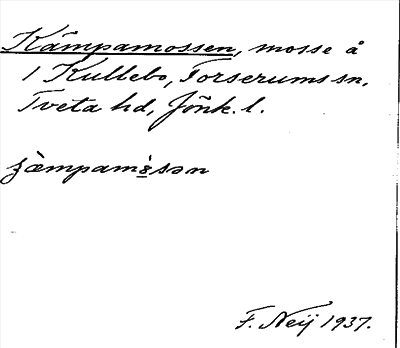 Kämpamossen, mosse å
1 Kullebo, Forserums sn,
Tveta hd, Jönk. l.
F. Neij 1937.